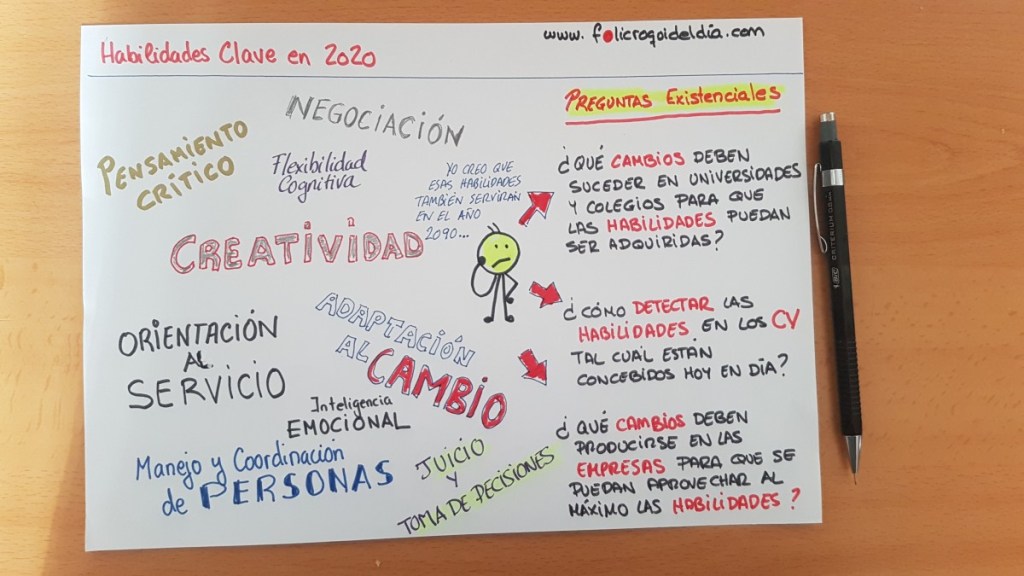 Habilidades Clave en 2020
www. folicroqoideldía.com
NEGOCIACIÓN
PENSAMIENTO
CRÍTICO
Flexibilidad
Cognitiva
YO CREO QUE
ESAS HABILIDADES
TAMBIÉN SERVIRÁN
EN EL AÑO
2090...
CREATIVIDAD
ORIENTACIÓN
AL
SERVICIO
ADAPTACIÓN
AL CAMBIO
Inteligencia
EMOCIONAL
Manejo y Coordinación
de PERSONAS
JUICIO
Y
TOMA DE DECISIONES
PREGUNTAS EXistenciales
¿QUÉ CAMBIOS DEBEN
SUCEDER EN UNIVERSIDADES
Y COLEGIOS PARA QUE
LAS HABILIDADES PUEDAN
SER ADQUIRIDAS?
¿CÓMO DETECTAR LAS
HABILIDADES EN LOS CV
TAL CUAL ESTÁN
CONCEBIDOS HOY EN DÍA?
¿QUÉ CAMBIOS DEBEN
PRODUCIRSE EN LAS
EMPRESAS PARA QUE SE
PUEDAN APROVECHAR AL
MÁXIMO LAS HABILIDADES?
BIC CRITERIUM